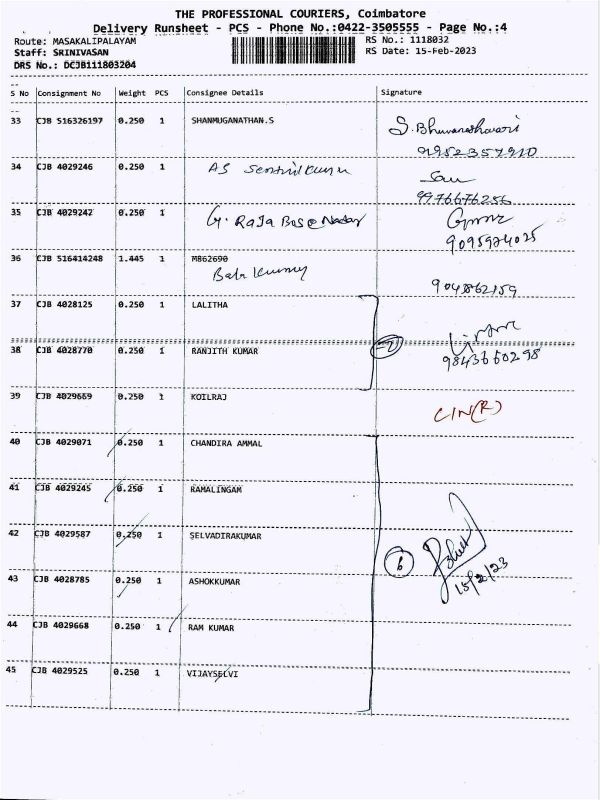 THE PROFESSIONAL COURIERS, Coimbatore
Delivery Runsheet - PCS - Phone No.:0422-3505555 - Page No.:4
Route: MASAKALIPALAYAM RS No.: 1118032
Staff: SRINIVASAN RS Date: 15-Feb-2023
DRS No.: DCJB111803204
S No Consignment No Weight PCS Consignee Details Signature
33 CJB 516326197 0.250 1 SHANMUGANATHAN.S S. Bhuvaneshwari
9952357910
34 CJB 4029246 0.250 1 AS Senthil Kumar
9976676256
35 CJB 4029242 0.250 1 G. Raja Bose Nadar
9095974025
36 CJB 516414248 1.445 1 M862690
Babu Kumar 904862159
37 CJB 4028125 0.250 1 LALITHA
38 CJB 4028770 0.250 1 RANJITH KUMAR 2
9843660298
39 CJB 4029669 0.250 1 KOILRAJ C/N(R)
40 CJB 4029071 0.250 1 CHANDIRA AMMAL
41 CJB 4029245 0.250 1 RAMALINGAM
42 CJB 4029587 0.250 1 SELVADIRAKUMAR
6
15/2/23
43 CJB 4028785 0.250 1 ASHOKKUMAR
44 CJB 4029668 0.250 1 RAM KUMAR
45 CJB 4029525 0.250 1 VIJAYSELVI